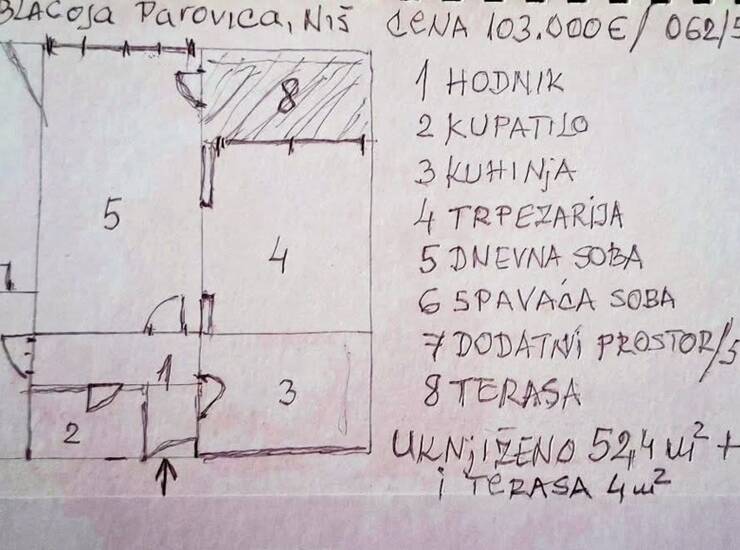 BLAGOJA PAROVIĆA, NIŠ CENA 103.000€/ 062/5
1 HODNIK
2 KUPATILO
3 KUHINJA
4 TRPEZARIJA
5 DNEVNA SOBA
6 SPAVAĆA SOBA
7 DODATNI PROSTOR/S
8 TERASA
UKNJIŽENO 52,4 m² +
i TERASA 4m²
8
5
4
1
3
2